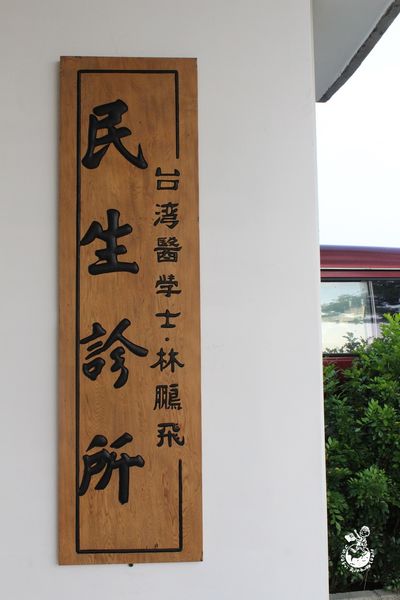 台湾醫学士·林鵬飛
民生診所